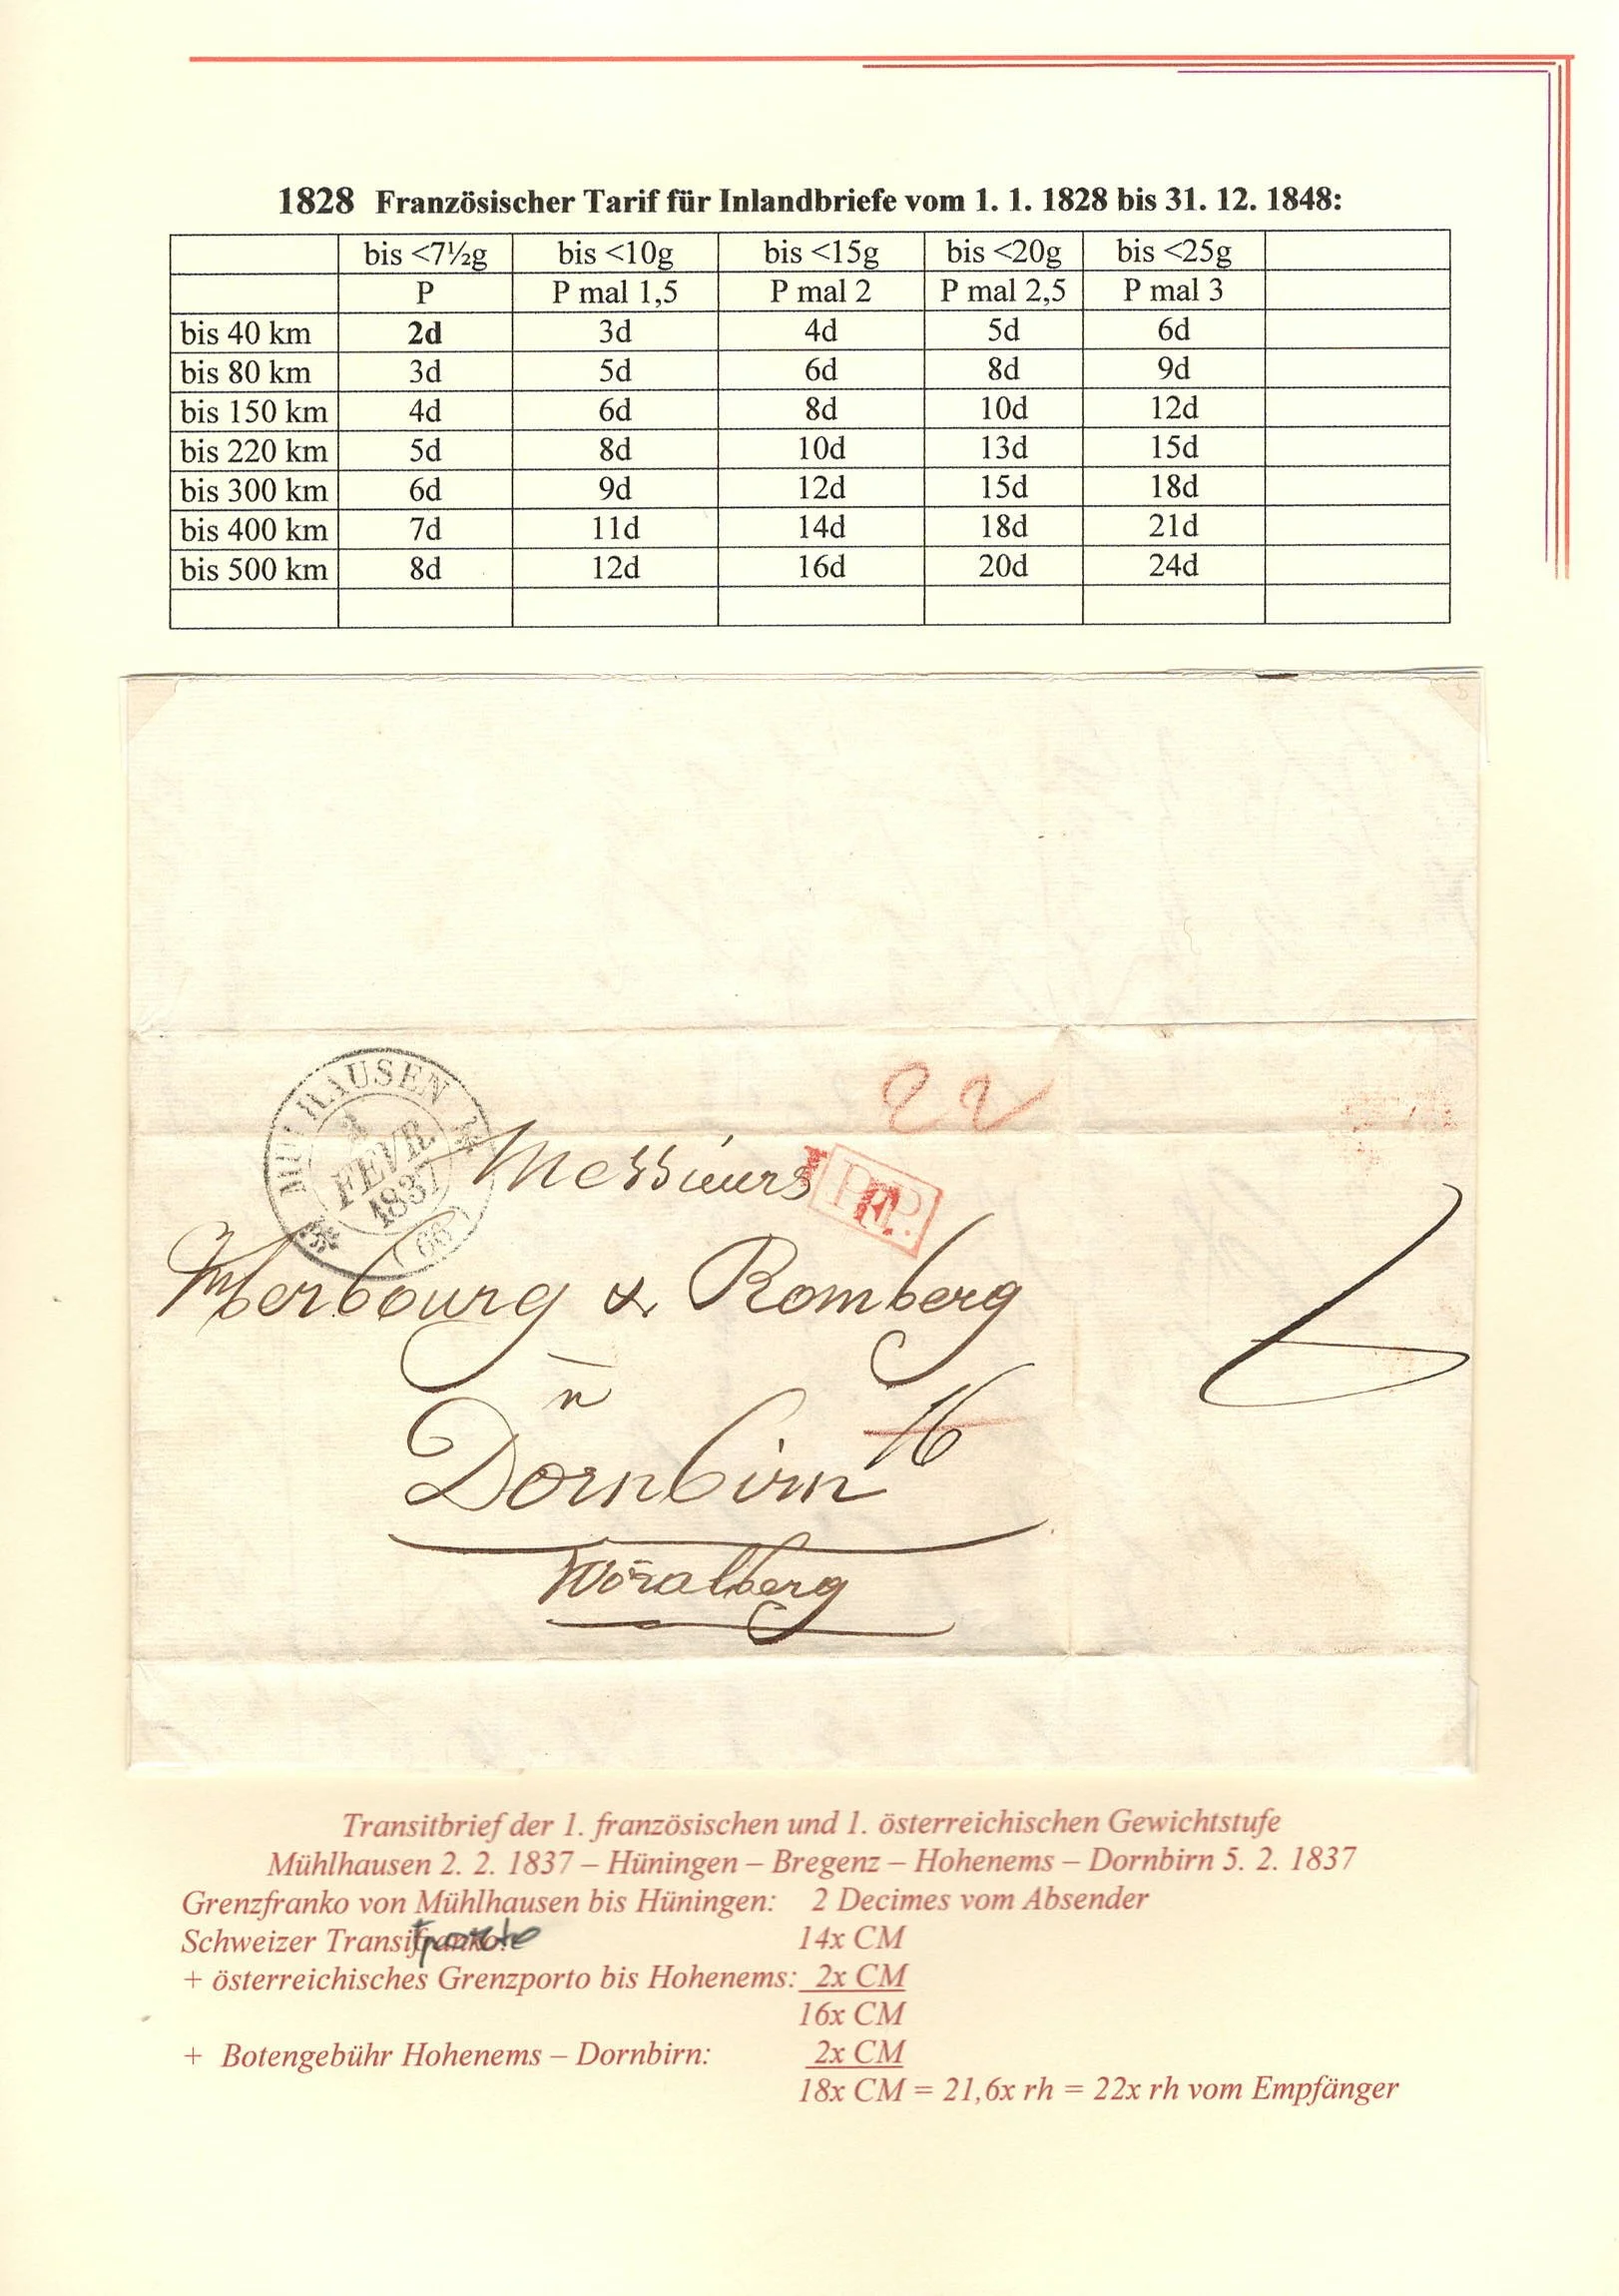 1828 Französischer Tarif für Inlandbriefe vom 1. 1. 1828 bis 31. 12. 1848:
bis <7½g bis <10g bis <15g bis <20g bis <25g
P P mal 1,5 P mal 2 P mal 2,5 P mal 3
bis 40 km 2d 3d 4d 5d 6d
bis 80 km 3d 5d 6d 8d 9d
bis 150 km 4d 6d 8d 10d 12d
bis 220 km 5d 8d 10d 13d 15d
bis 300 km 6d 9d 12d 15d 18d
bis 400 km 7d 11d 14d 18d 21d
bis 500 km 8d 12d 16d 20d 24d
22
MULHAUSEN
2
FEVR.
1837
(66)
Messieurs
P.P.
F.
Herbourg & Romberg
à
16
Dornbirn
Voralberg
Transitbrief der 1. französischen und 1. österreichischen Gewichtstufe
Mühlhausen 2. 2. 1837 – Hüningen – Bregenz – Hohenems – Dornbirn 5. 2. 1837
Grenzfranko von Mühlhausen bis Hüningen: 2 Decimes vom Absender
Schweizer Transitporto 14x CM
+ österreichisches Grenzporto bis Hohenems: 2x CM
16x CM
+ Botengebühr Hohenems – Dornbirn: 2x CM
18x CM = 21,6x rh = 22x rh vom Empfänger